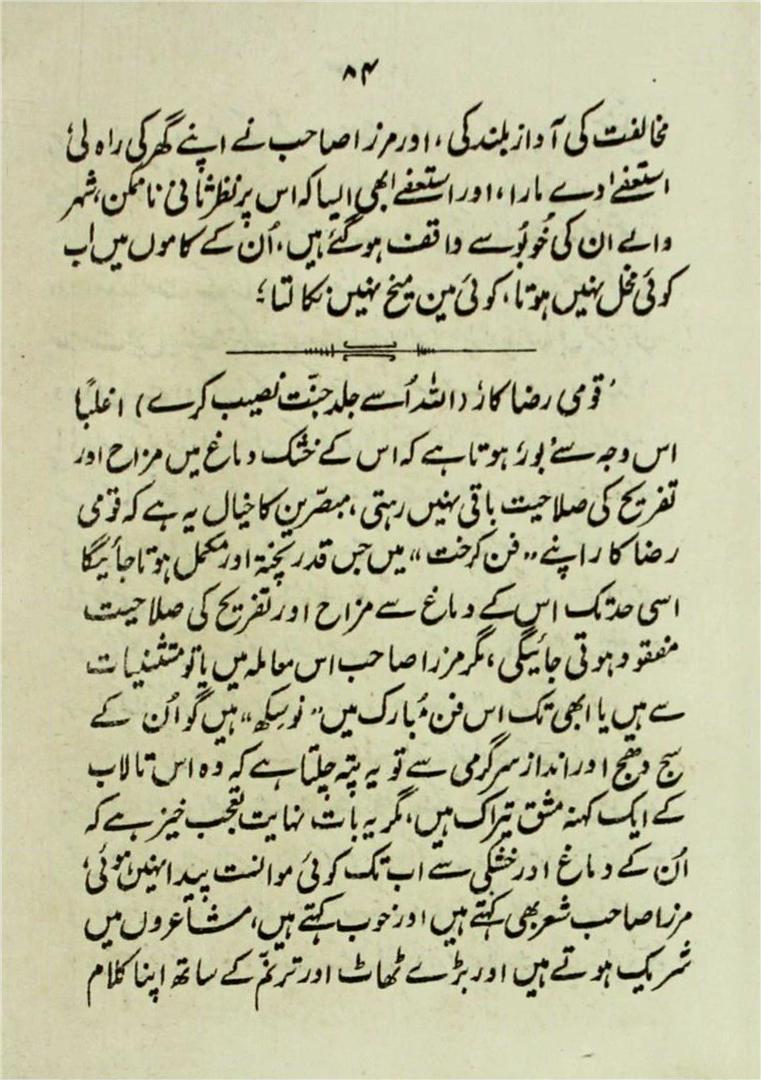 ۸۴
مخالفت کی آواز بلند کی، اور مرزا صاحب نے اپنے گھر کی راہ لی،
استعفےٰ دے مارا، اور استعفےٰ بھی ایسا کہ اس پر نظر ثانی ناممکن، شہر
والے ان کی خُوبُو سے واقف ہو گئے ہیں، اُن کے کاموں میں اب
کوئی مخل نہیں ہوتا، کوئی مین میخ نہیں نکالتا؛
’قومی رضا کار‘ (اللہ اُسے جلد جنّت نصیب کرے) اغلبًا
اس وجہ سے ’بور‘ ہوتا ہے کہ اس کے خشک دماغ میں مزاح اور
تفریح کی صلاحیت باقی نہیں رہتی، مبصّرین کا خیال یہ ہے کہ قومی
رضا کار اپنے ”فن کرخت“ میں جس قدر پختہ اور مکمل ہوتا جائیگا
اسی حد تک اس کے دماغ سے مزاح اور تفریح کی صلاحیت
مفقود ہوتی جائیگی، مگر مرزا صاحب اس معاملہ میں یا تو مستثنیات
سے ہیں یا ابھی تک اس فن مُبارک میں ”نوسکھ“ ہیں گو اُن کے
سج دھج اور انداز سرگرمی سے تو یہ پتہ چلتا ہے کہ وہ اس تالاب
کے ایک کہنہ مشق تیراک ہیں، مگر یہ بات نہایت تعجب خیز ہے کہ
اُن کے دماغ اور خشکی سے اب تک کوئی موانست پیدا نہیں ہوئی،
مرزا صاحب شعر بھی کہتے ہیں اور خوب کہتے ہیں، مشاعروں میں
شریک ہوتے ہیں اور بڑے ٹھاٹ اور ترنّم کے ساتھ اپنا کلام